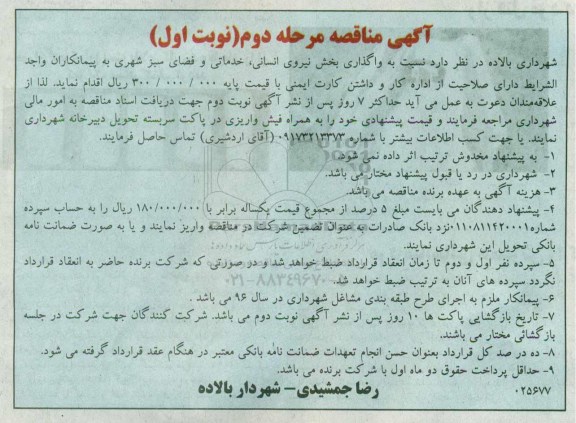 آگهی مناقصه مرحله دوم(نوبت اول)
شهرداری بالاده در نظر دارد نسبت به واگذاری بخش نیروی انسانی، خدماتی و فضای سبز شهری به پیمانکاران واجد
الشرایط دارای صلاحیت از اداره کار و داشتن کارت ایمنی با قیمت پایه ۰۰۰ / ۰۰۰ / ۳۰۰ ریال اقدام نماید. لذا از
علاقه‌مندان دعوت به عمل می آید حداکثر ۷ روز پس از نشر آگهی نوبت دوم جهت دریافت اسناد مناقصه به امور مالی
شهرداری مراجعه فرمایند و قیمت پیشنهادی خود را به همراه فیش واریزی در پاکت سربسته تحویل دبیرخانه شهرداری
نمایند. یا جهت کسب اطلاعات بیشتر با شماره ۰۹۱۷۳۲۱۳۳۷۳ (آقای اردشیری) تماس حاصل فرمایند.
۱- به پیشنهاد مخدوش ترتیب اثر داده نمی شود.
۲- شهرداری در رد یا قبول پیشنهاد مختار می باشد.
۳- هزینه آگهی به عهده برنده مناقصه می باشد.
۴- پیشنهاد دهندگان می بایست مبلغ ۵ درصد از مجموع قیمت یکساله برابر با ۱۸۰/۰۰۰/۰۰۰ ریال را به حساب سپرده
شماره ۰۱۱۰۸۱۱۴۲۰۰۰۱ نزد بانک صادرات به عنوان تضمین شرکت در مناقصه واریز نمایند و یا به صورت ضمانت نامه
بانکی تحویل این شهرداری نمایند.
۵- سپرده نفر اول و دوم تا زمان انعقاد قرارداد ضبط خواهد شد و در صورتی که شرکت برنده حاضر به انعقاد قرارداد
نگردد سپرده های آنان به ترتیب ضبط خواهد شد.
۶- پیمانکار ملزم به اجرای طرح طبقه بندی مشاغل شهرداری در سال ۹۶ می باشد .
۷- تاریخ بازگشایی پاکت ها ۱۰ روز پس از نشر آگهی نوبت دوم می باشد. شرکت کنندگان جهت شرکت در جلسه
بازگشائی مختار می باشند.
۸- ده در صد کل قرارداد بعنوان حسن انجام تعهدات ضمانت نامه بانکی معتبر در هنگام عقد قرارداد گرفته می شود.
۹- حداقل پرداخت حقوق دو ماه اول با شرکت برنده می باشد.
رضا جمشیدی- شهردار بالاده
۰۲۵۶۷۷
۰۲۱-۸۸۳۴۹۶۷۰